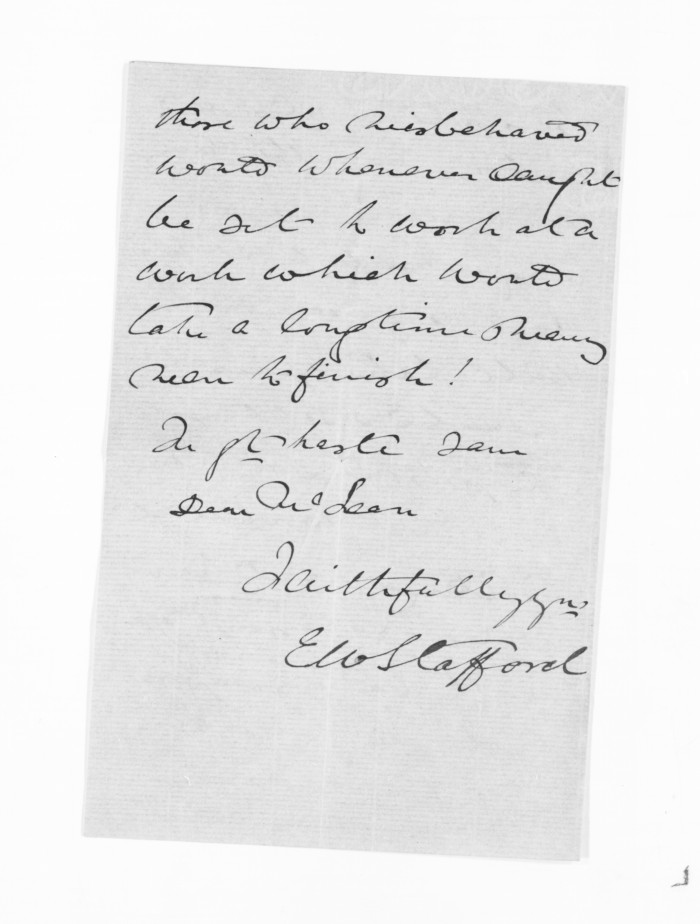 those who misbehaved
would whenever caught
be set to work at a
work which would
take a long time & many
men to finish!
In gt haste I am
Dear McLean
Faithfully yrs
EWStafford